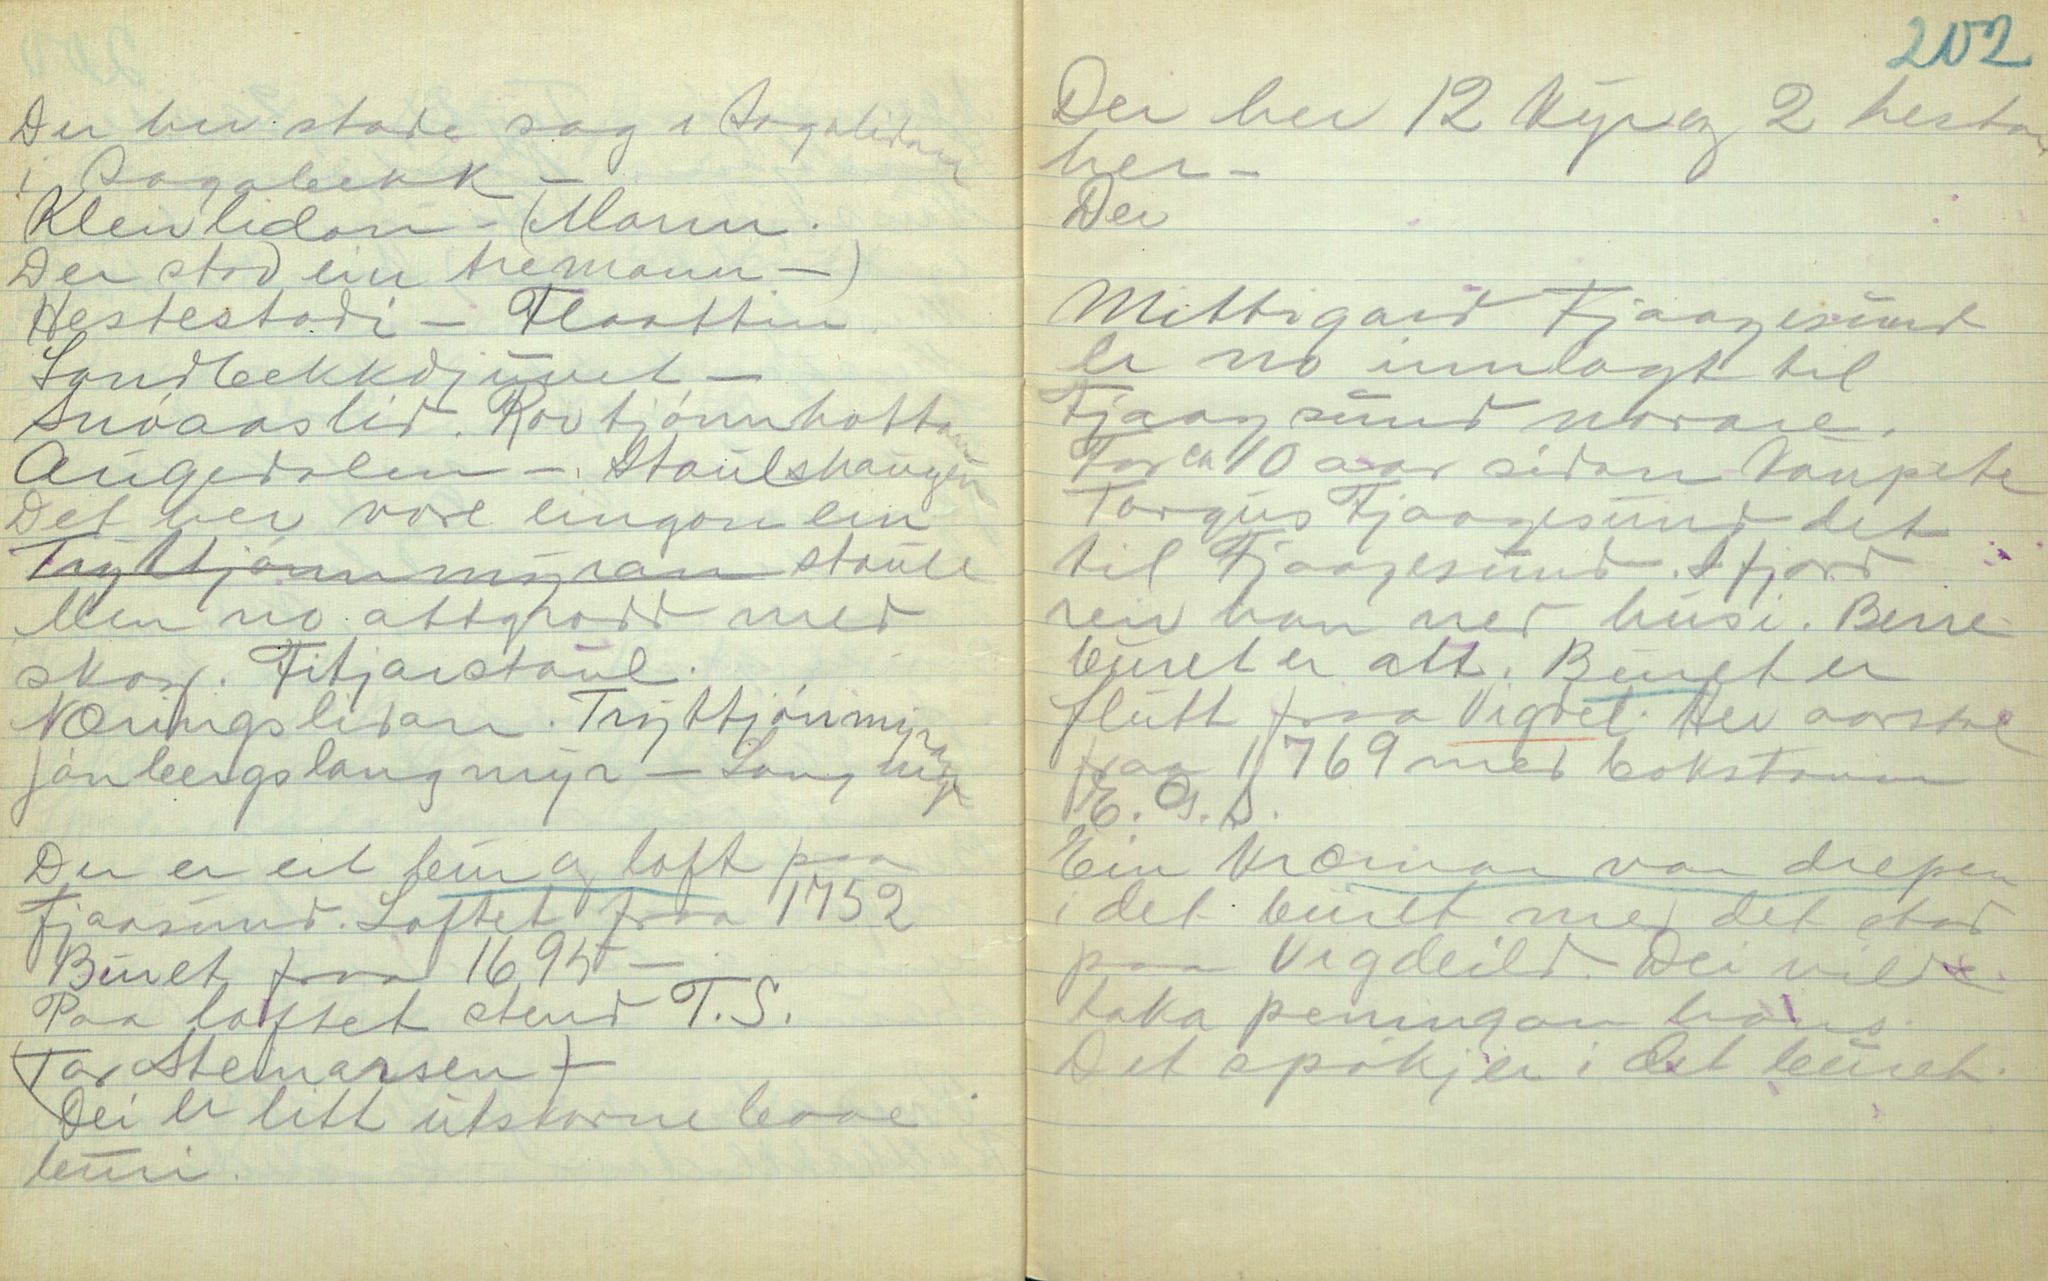 Der hev stade sag i Sagalidan
i Sagabekk –
Kleivlidan – (Mann.
Der stod ein tremann –)
Hestestodi – Flaattin
Sandbekkdjuvet –
Snóaaslid. Rovtjónnhattan
Augedalen – Staulshaugen
Det hev vore eingon ein
Tryttjónnmyran staule
Men no attgrodd med
skog. Fitjarstaul.
Næringslidan. Tryttjónmyran
jónbergslangmyr – Langmyr
Der er eit bur og loft paa
Fjaasund. Loftet fraa 1752
Buret fraa 1695 –
Paa loftet stend T.S.
(Tor Steinarsen) –
Dei er litt utskorne baae
buri.
202
Dei hev 12 kyr og 2 hestar
her –
Dei
Mittigard Fjaagesund
er no innlagt til
Fjaagesund nordre.
For ca 10 aar sidan kaupete
Targus Fjaagesund det
til Fjaagesund. I fjord
reiv han ned husi. Berre
buret er att. Buret er
flutt fraa Vigdel. Hev aarstal
fraa 1769 med bokstavan
E. O. S.
Ein kræmar var drepen
i det buret med det stod
paa Vigdeild. Dei vilde
taka peningan hans.
Det spókjer i det buret.